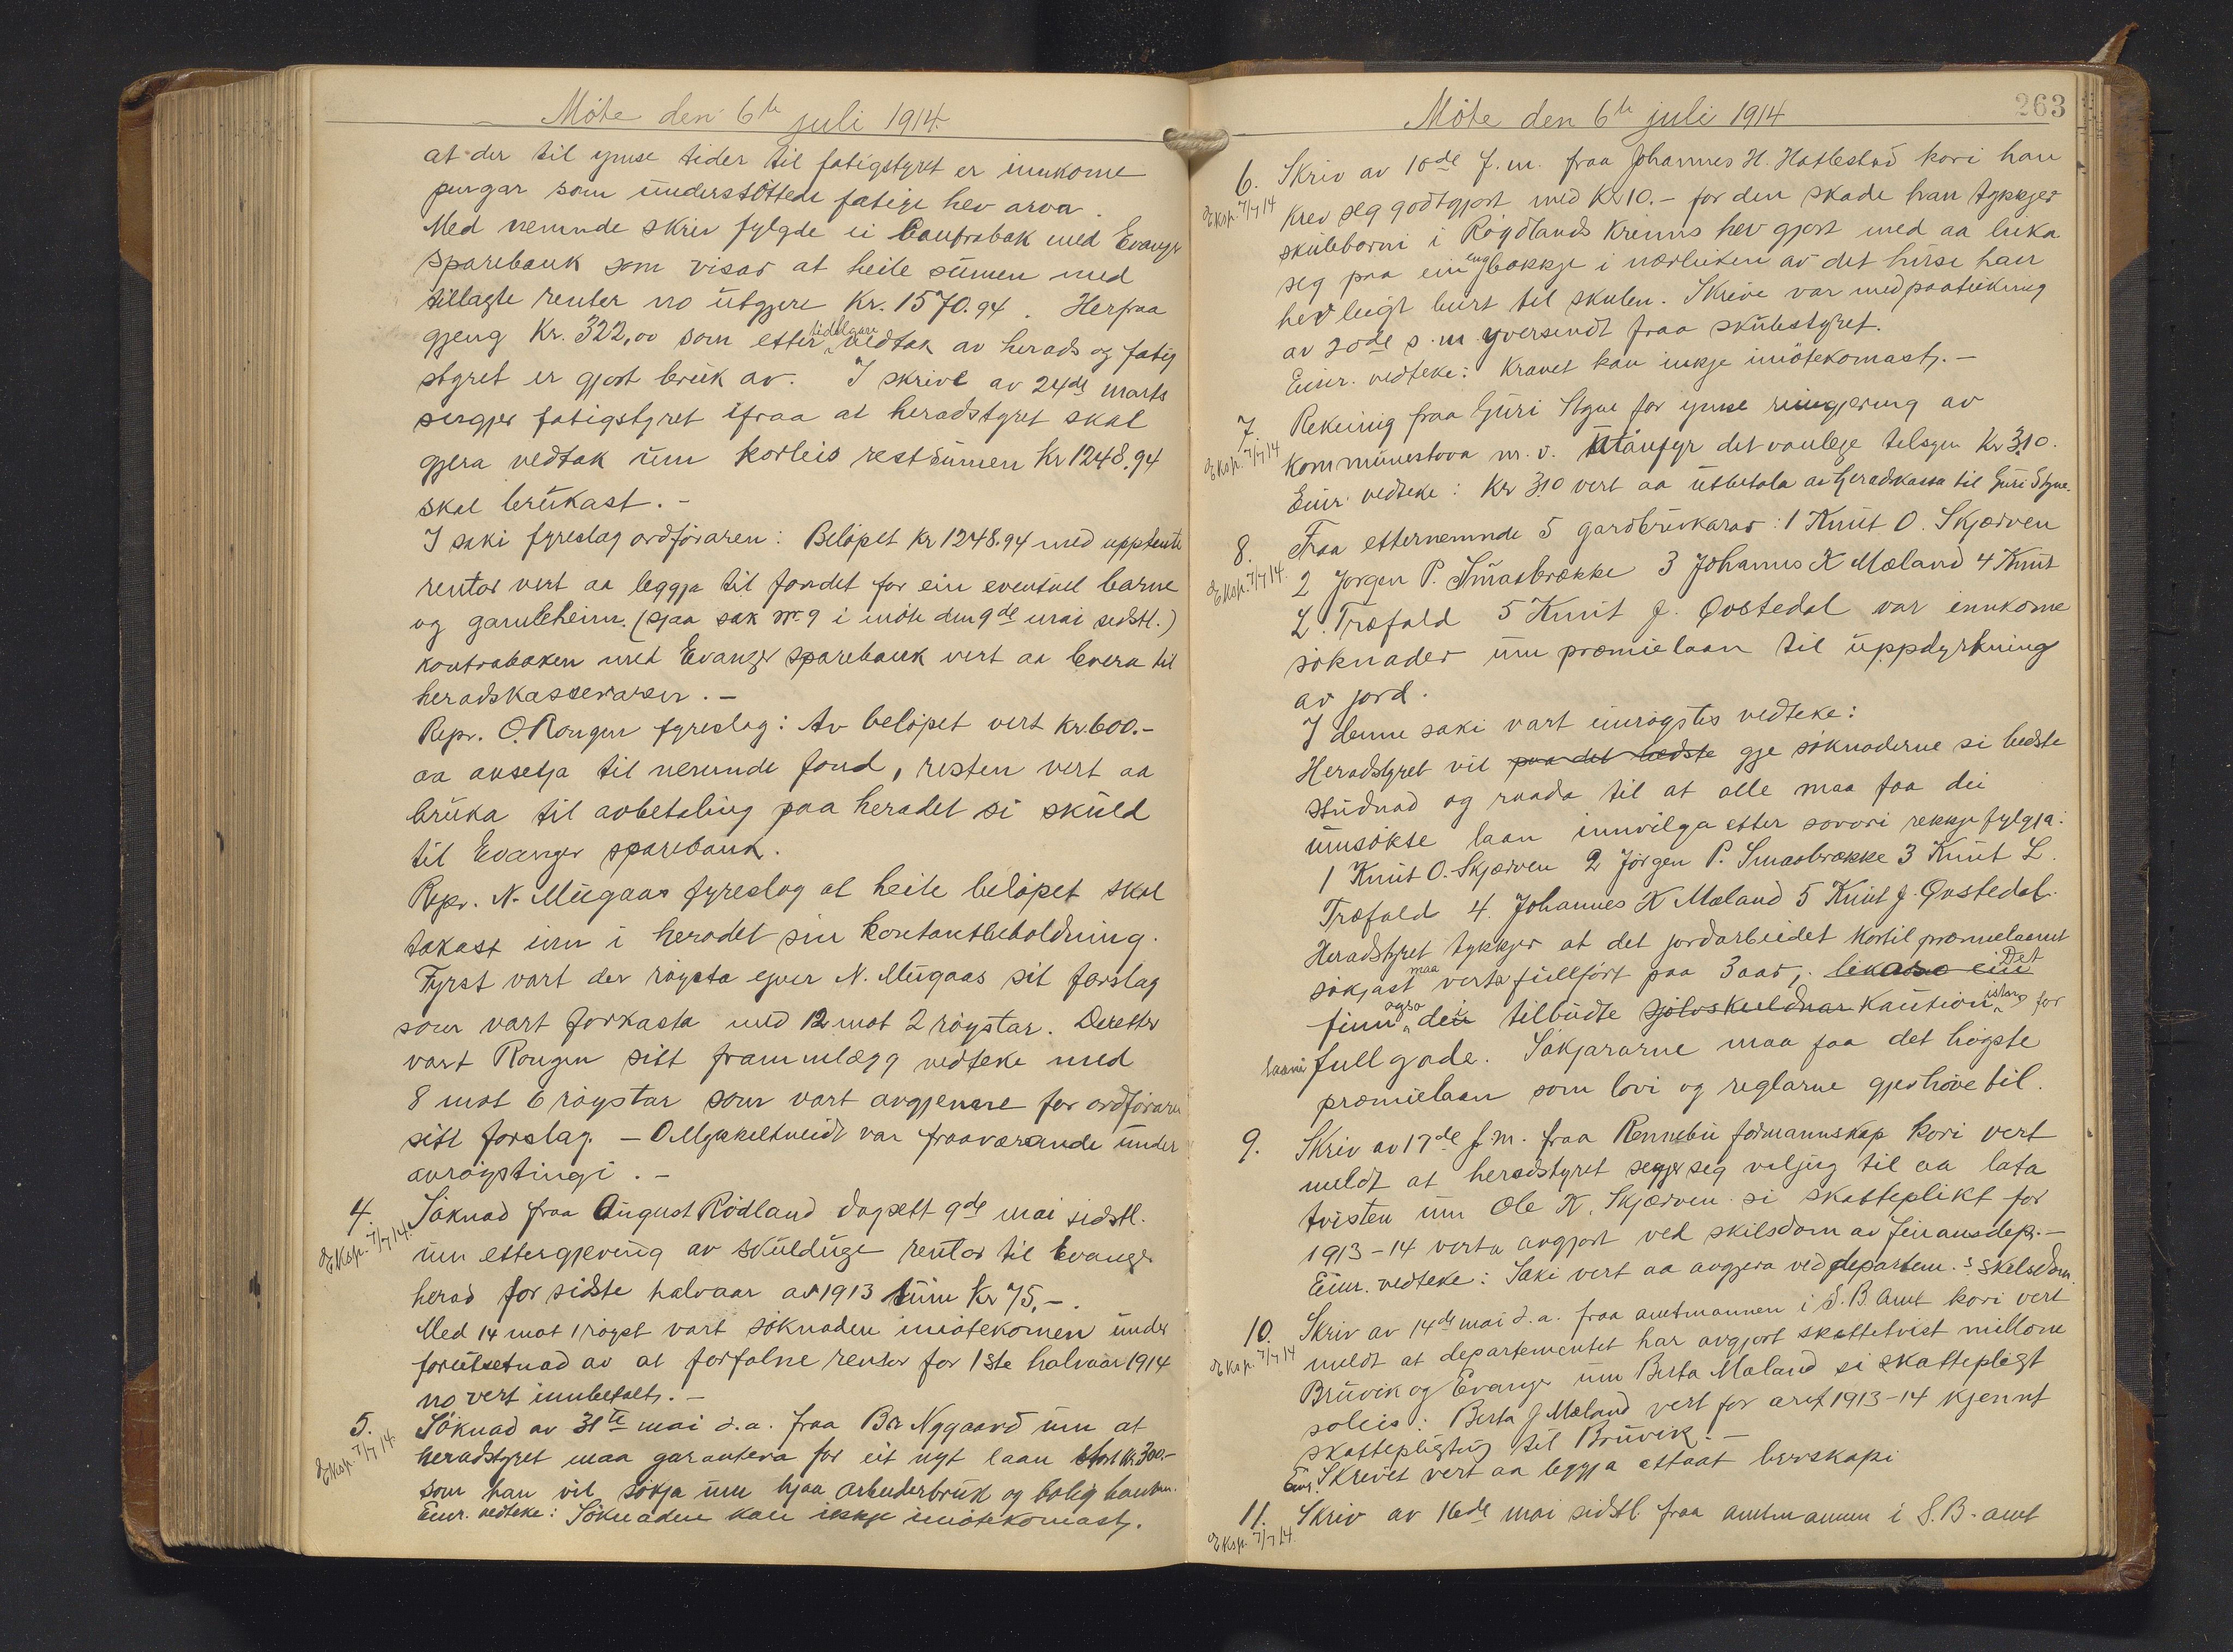 Möte den 6te juli 1914.
at der til ymse tider til fatigstyret er innkome
pengar som understöttede fatige hev arva.
Med nemnde skriv fylgde ei Contrabok med Evanger
Sparebank som visar at heile sumen med
tillagte renter no utgjere Kr. 1570.94. Herfraa
gjeng Kr. 322,00 som etter tidlegare vedtak av herads og fatig
styret er gjort bruk av. I skrive av 24de marts
spergjer fatigstyret ifraa at heradstyret skal
gjera vedtak um korleis restsumen Kr 1248.94
skal brukast.-
I saki fyreslog ordföraren: Belöpet Kr 1248.94 med upptente
rentor vert aa leggja til fondet for ein eventuel barne
og gamleheim. (Sjaa sak nr. 9 i möte den 9de mai sidstl.)
kontraboken med Evanger sparebank vert aa levera til
heradskasseraren.-
Repr. O. Rongen fyreslog: Av belöpet vert Kr. 600.-
aa avsetja til nemnde fond, resten vert aa
bruka til avbetaling paa heradet si skuld
til Evanger sparebank.
Repr. N. Mügaas fyreslog at heile belöpet skal
takast inn i heradet sin kontantbeholdning.
Fyrst vart der röysta yver N. Mugaas sit forslag
som vart forkasta med 12 mot 2 röystar. Deretter
vart Rongen sitt frammlegg vedteke med
8 mot 6 röystar som vart avgjevne for ordföraren
sitt forslag. - O Mykeltveidt var fraaverande under
avröystingi.-
4. Söknad fraa August Rödland dagsett 9de mai sidstl.
Eksp. 7/7 14. um ettergjeving av skulduge rentor til Evanger
herad for sidste halvaar av 1913 tüm Kr 75,-.
Med 14 mot 1 röyst vart söknaden imötekomen under
forutsetnad av at forfalne rentor for 1ste halvaar 1914
no vert innbetalt.-
5. Söknad av 31te mai d.a. fraa Br. Nygaard um at
Eksp. 7/7 14. heradstyret maa garantera for eit nyt laan stort Kr. 300.-
som han vil sökja um hjaa arbeiderbruk og bolig banken.
Einr. vedteke: Söknaden kan ikkje imötekomast.
263
Möte den 6te juli 1914
6. Skriv av 10de f.m. fraa Johannes H. Hatlestad kori han
Eksp. 7/7 14 krev seg godtgjort med Kr 10.- for den skade han tykkjer
skuleborni i Röydlands Krinns hev gjort med aa luka
seg paa ein eng bakkje i nærleiken av det huse han
hev leigt burt til skulen. Skrive var med paateikning
av 20de s.m yversendt fraa skulestyret.
Einr. vedteke: Kravet kan inkje imötekomast.-
7. Rekning fraa Guri Styve for ymse reingjering av
Eksp. 7/7 14 Kommunestova m.v. utanfyr det vanlege tilsyn Kr 3.10.
Einr. vedteke: Kr 310 vert aa utbetala av heradkassa til Guri Styve.
8. Fraa etternemnde 5 gardbrukarar: 1 Knut O. Skjerven
Eksp. 7/7 14. 2 Jorgen P. Smaabrekke 3 Johannes K Mæland 4 Knut
L. Træfald 5 Knut J. Qvstedal var innkome
söknader um premielaan til uppdyrkning
av jord.
I denne saki vart einröystes vedteke:
Heradstyret vil paa det bedste gje söknaderne si bedste
studnad og raada til at alle maa faa dei
umsökte laan innvilga etter sovori rekkjefylgja:
1 Knut O. Skjerven 2 Jörgen P. Smaabrekke 3 Knut L.
Træfald 4. Johannes K Mæland 5 Knut J. Qvstedal.
Heradstyret tykkjer at det jordarbeidet kortil premielaanet
sökjast maa verta fullfört paa 3 aar; likaso ein Det
finn ogso dei tilbudte sjölvskuldnar kautionistar for
laani fullgode. Sökjararne maa faa det högste
premielaan som lovi og reglarne gjev höve til.
9. Skriv av 17de f.m. fraa Rennebu formannskap kori vert
meldt at heradstyret segjer seg viljug til aa lata
tvisten um Ole K. Skjerven si skatteplikt for
1913-14 verta avgjort ved skilsdom av Finansdep.-
Einr. vedteke: Saki vert aa avgjera ved departem.s skilsdom.
10. Skriv av 14de mai d.a. fraa amtmannen i S.B. Amt kori vert
Eksp. 7/7 14 meldt at departementet har avgjort skattetvist millom
Bruvik og Evanger um Berta Mæland si skattepligt
soleis: Berta J Mæland vert for aret 1913-14 kjennt
skattepligtig til Bruvik.-
Einr. Skrivet vert aa leggja attaat herskapi
11. Skriv av 16de mai sidstl. fraa amtmannen i S.B. amt
Eksp. 7/7 14.